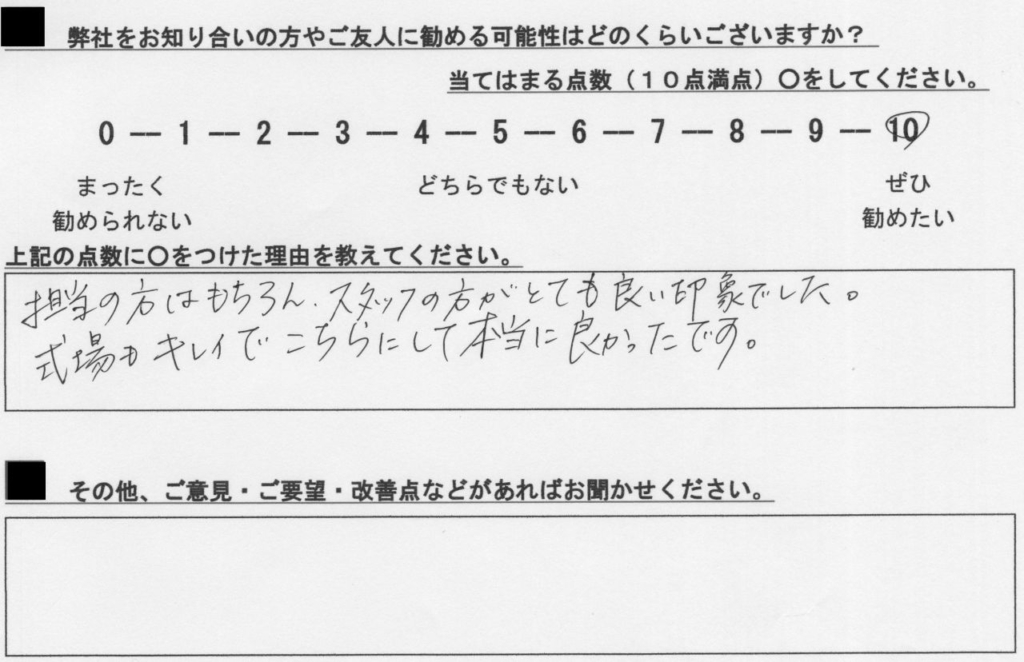 弊社をお知り合いの方やご友人に勧める可能性はどのくらいございますか？
当てはまる点数（１０点満点）〇をしてください。
0 -- 1 -- 2 -- 3 -- 4 -- 5 -- 6 -- 7 -- 8 -- 9 -- 10
まったく どちらでもない ぜひ
勧められない 勧めたい
上記の点数に〇をつけた理由を教えてください。
担当の方はもちろん、スタッフの方がとても良い印象でした。
式場もキレイでこちらにして本当に良かったです。
その他、ご意見・ご要望・改善点などがあればお聞かせください。